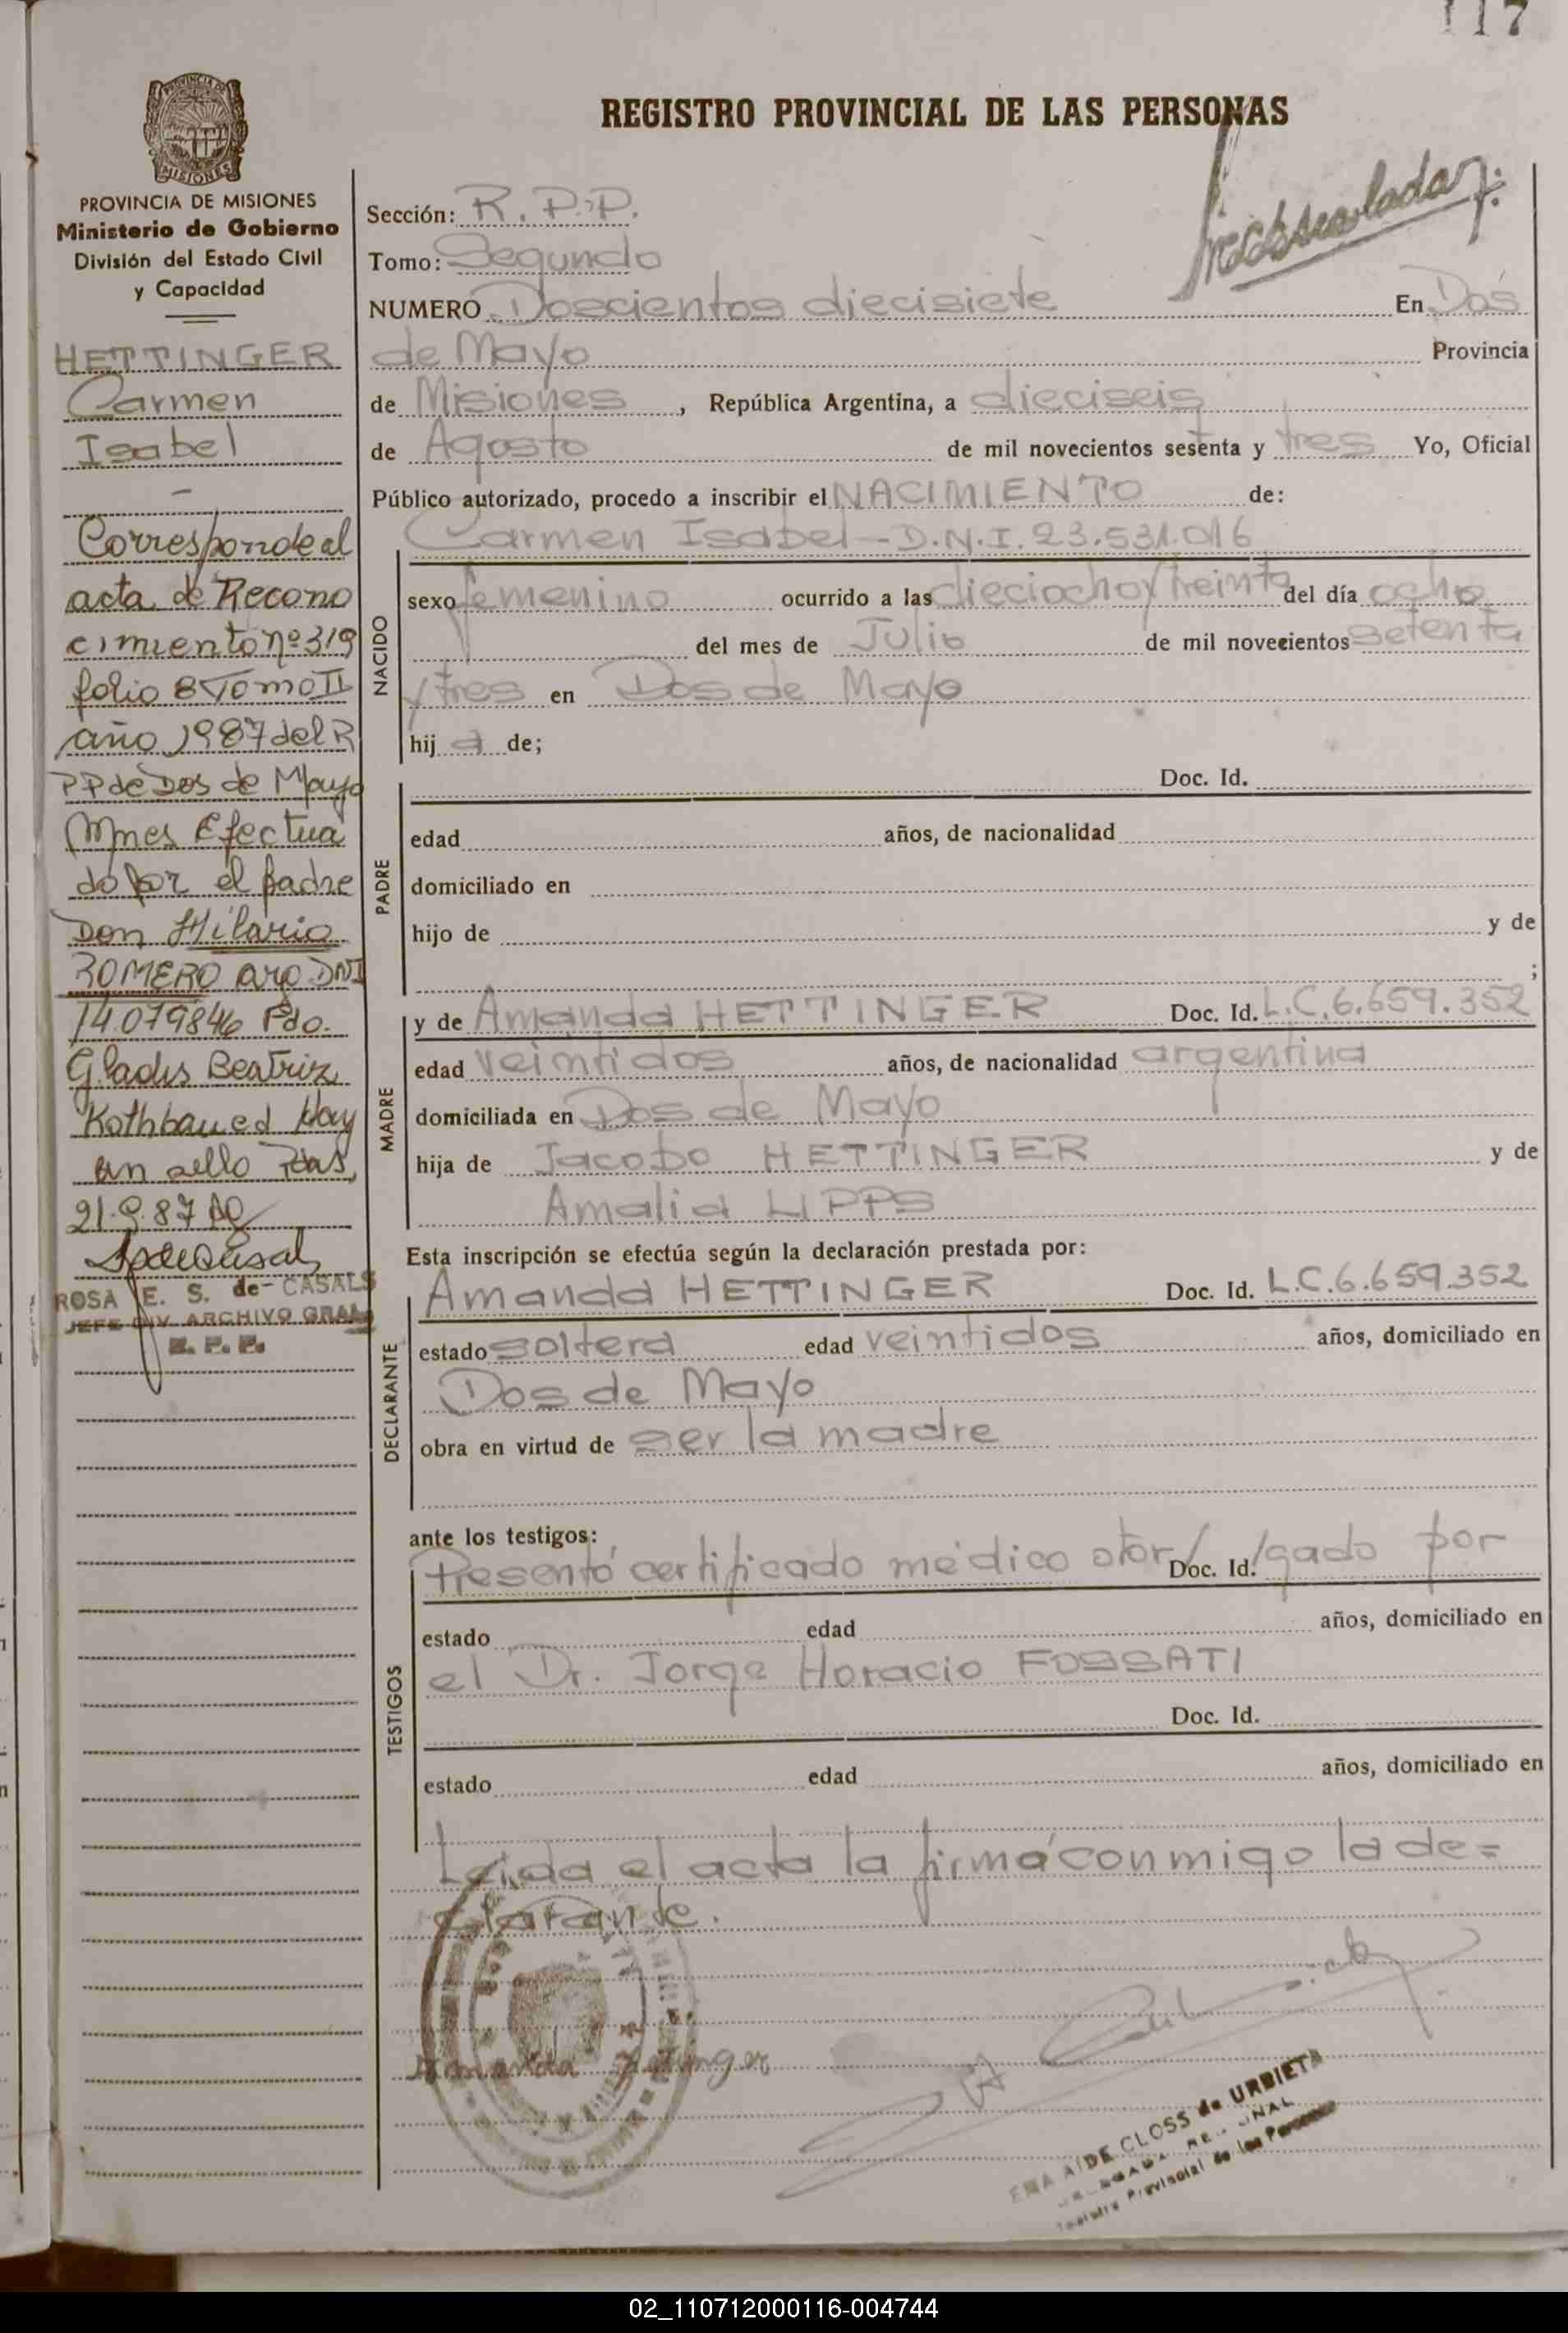 117
PROVINCIA DE MISIONES
Ministerio de Gobierno
División del Estado Civil
y Capacidad
HETTINGER
Carmen
Isabel
-
Corresponde al
acta de Recono
cimiento nº 319
folio 8 Tomo II
año 1987 del R
PP de Dos de Mayo
Mnes Efectua
do por el padre
Don Hilario
ROMERO arg DNI
14.079846 Fdo.
Gladis Beatriz
Hay
un sello Pdas,
21.9.87
ROSA E. S. de CASALS
JEFE DIV ARCHIVO GRAL
R. P. P.
REGISTRO PROVINCIAL DE LAS PERSONAS
Sección: R. P. P.
Tomo: Segundo
NUMERO Doscientos diecisiete En Dos
de Mayo Provincia
de Misiones, República Argentina, a dieciseis
de Agosto de mil novecientos sesenta y tres Yo, Oficial
Público autorizado, procedo a inscribir el NACIMIENTO de:
Carmen Isabel - D.N.I. 23.531.016
NACIDO
sexo femenino ocurrido a las dieciocho y treinta del día ocho
del mes de Julio de mil novecientos setenta
y tres en Dos de Mayo
hij a de;
PADRE
Doc. Id.
edad años, de nacionalidad
domiciliado en
hijo de y de
;
MADRE
y de Amanda HETTINGER Doc. Id. L.C. 6.659.352
edad veintidos años, de nacionalidad argentina
domiciliada en Dos de Mayo
hija de Jacobo HETTINGER y de
Amalia LIPPS
Esta inscripción se efectúa según la declaración prestada por:
DECLARANTE
Amanda HETTINGER Doc. Id. L.C. 6.659.352
estado soltera edad veintidos años, domiciliado en
Dos de Mayo
obra en virtud de ser la madre
ante los testigos:
TESTIGOS
Presentó certificado médico otor/ Doc. Id. /gado por
estado edad años, domiciliado en
el Dr. Jorge Horacio FOSSATI
Doc. Id.
estado edad años, domiciliado en
Leida el acta la firma conmigo la de=
clarante.
Amanda Hetinger
AIDE CLOSS de URBIETA
Registro Provincial de las Personas
02_110712000116-004744